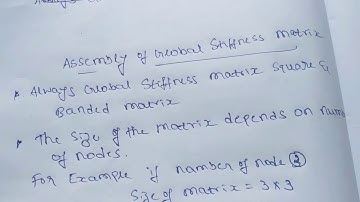 Assembly of Global Stiffness matrix
* Always Global Stiffness matrix Square &
Banded matrix
* The Size of the matrix depends on num
of nodes.
For Example if number of node 3
Size of matrix = 3 x 3